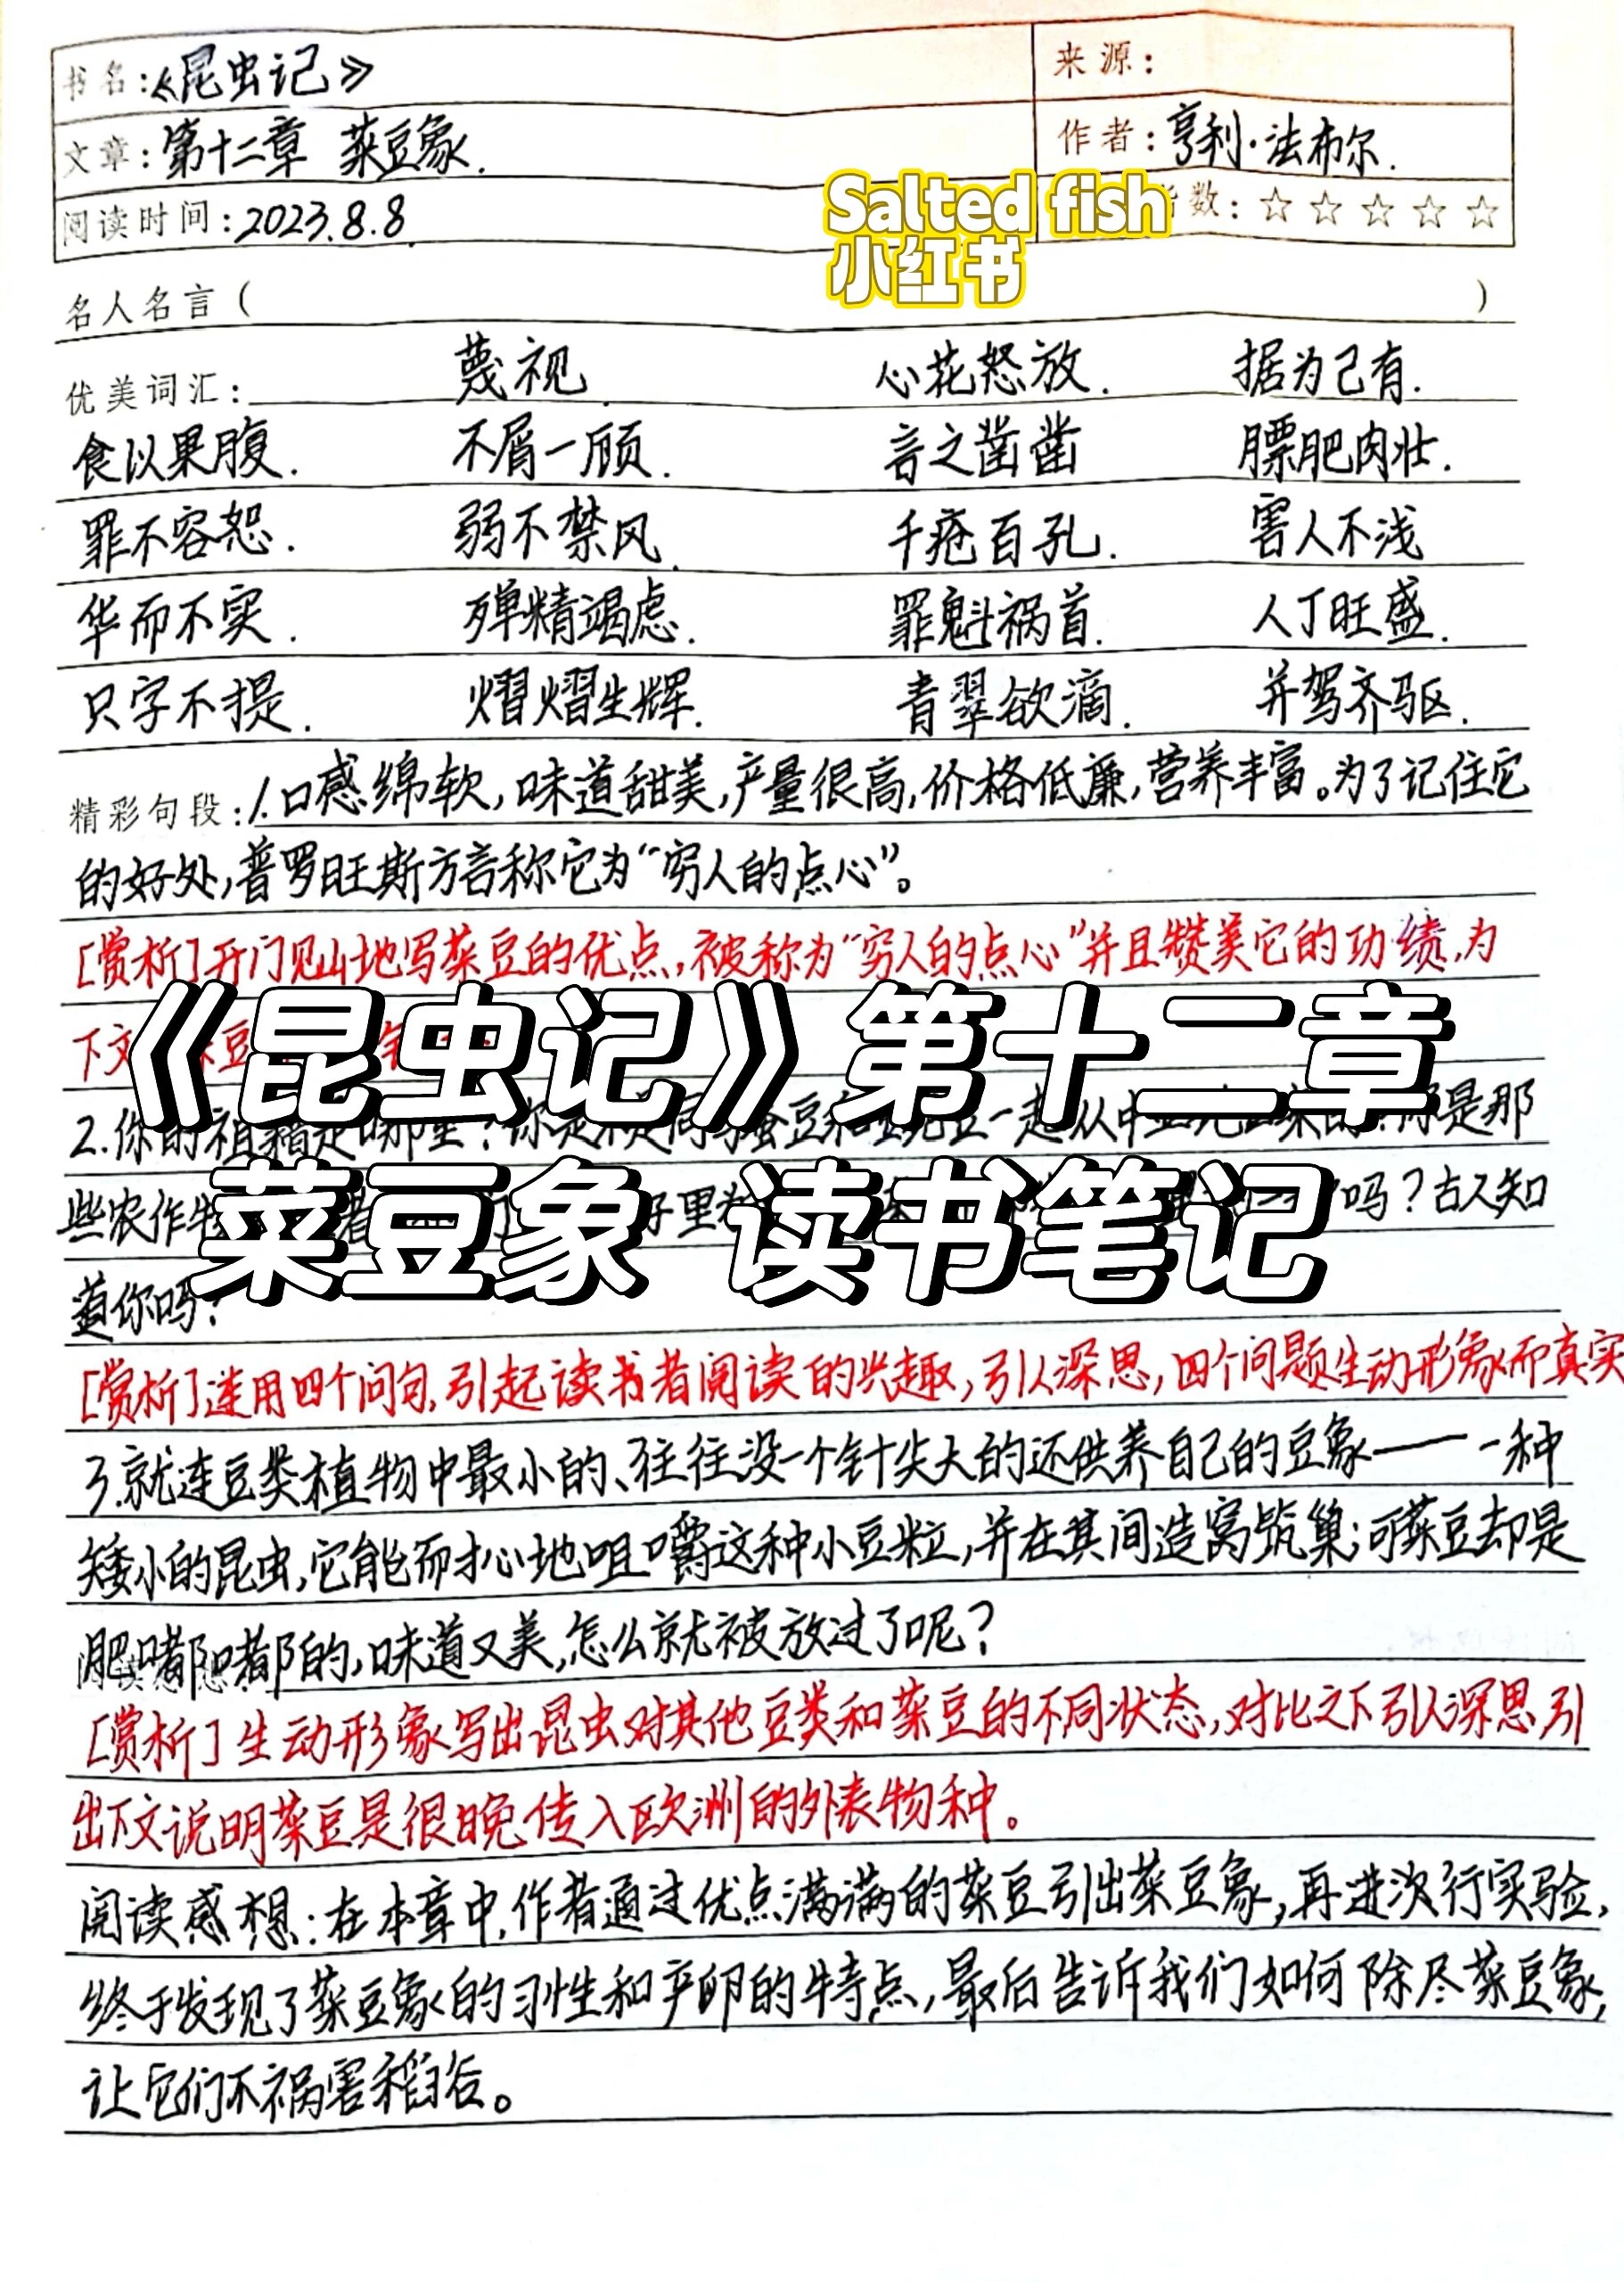 书名：《昆虫记》
来源：
文章：第十二章 菜豆象.
作者：亨利·法布尔.
阅读时间：2023.8.8
数：☆☆☆☆☆
Salted fish
小红书
名人名言（ ）
优美词汇： 蔑视 心花怒放. 据为己有.
食以果腹. 不屑一顾. 言之凿凿 膘肥肉壮.
罪不容恕. 弱不禁风. 千疮百孔. 害人不浅
华而不实. 殚精竭虑. 罪魁祸首. 人丁旺盛.
只字不提. 熠熠生辉. 青翠欲滴. 并驾齐驱.
精彩句段：1.口感绵软，味道甜美，产量很高，价格低廉，营养丰富。为了记住它
的好处，普罗旺斯方言称它为“穷人的点心”。
[赏析]开门见山地写菜豆的优点，被称为“穷人的点心”并且赞美它的功绩，为
下文
《昆虫记》第十二章
2.你的祖籍是哪里？你是不是同蚕豆和 一起从中 来的？你是那
些农作
菜豆象 读书笔记
吗？古人知
道你吗？
[赏析]连用四个问句，引起读书者阅读的兴趣，引人深思，四个问题生动形象而真实
3.就连豆类植物中最小的、往往没一个针尖大的还供养自己的豆象——一种
矮小的昆虫，它能耐心地咀嚼这种小豆粒，并在其间造窝筑巢；可菜豆却是
肥嘟嘟的，味道又美，怎么就被放过了呢？
[赏析]生动形象写出昆虫对其他豆类和菜豆的不同状态，对比之下引人深思，引
出下文说明菜豆是很晚传入欧洲的外表物种。
阅读感想：在本章中，作者通过优点满满的菜豆引出菜豆象，再进次行实验，
终于发现了菜豆象的习性和产卵的特点，最后告诉我们如何除尽菜豆象，
让它们不祸害稻谷。